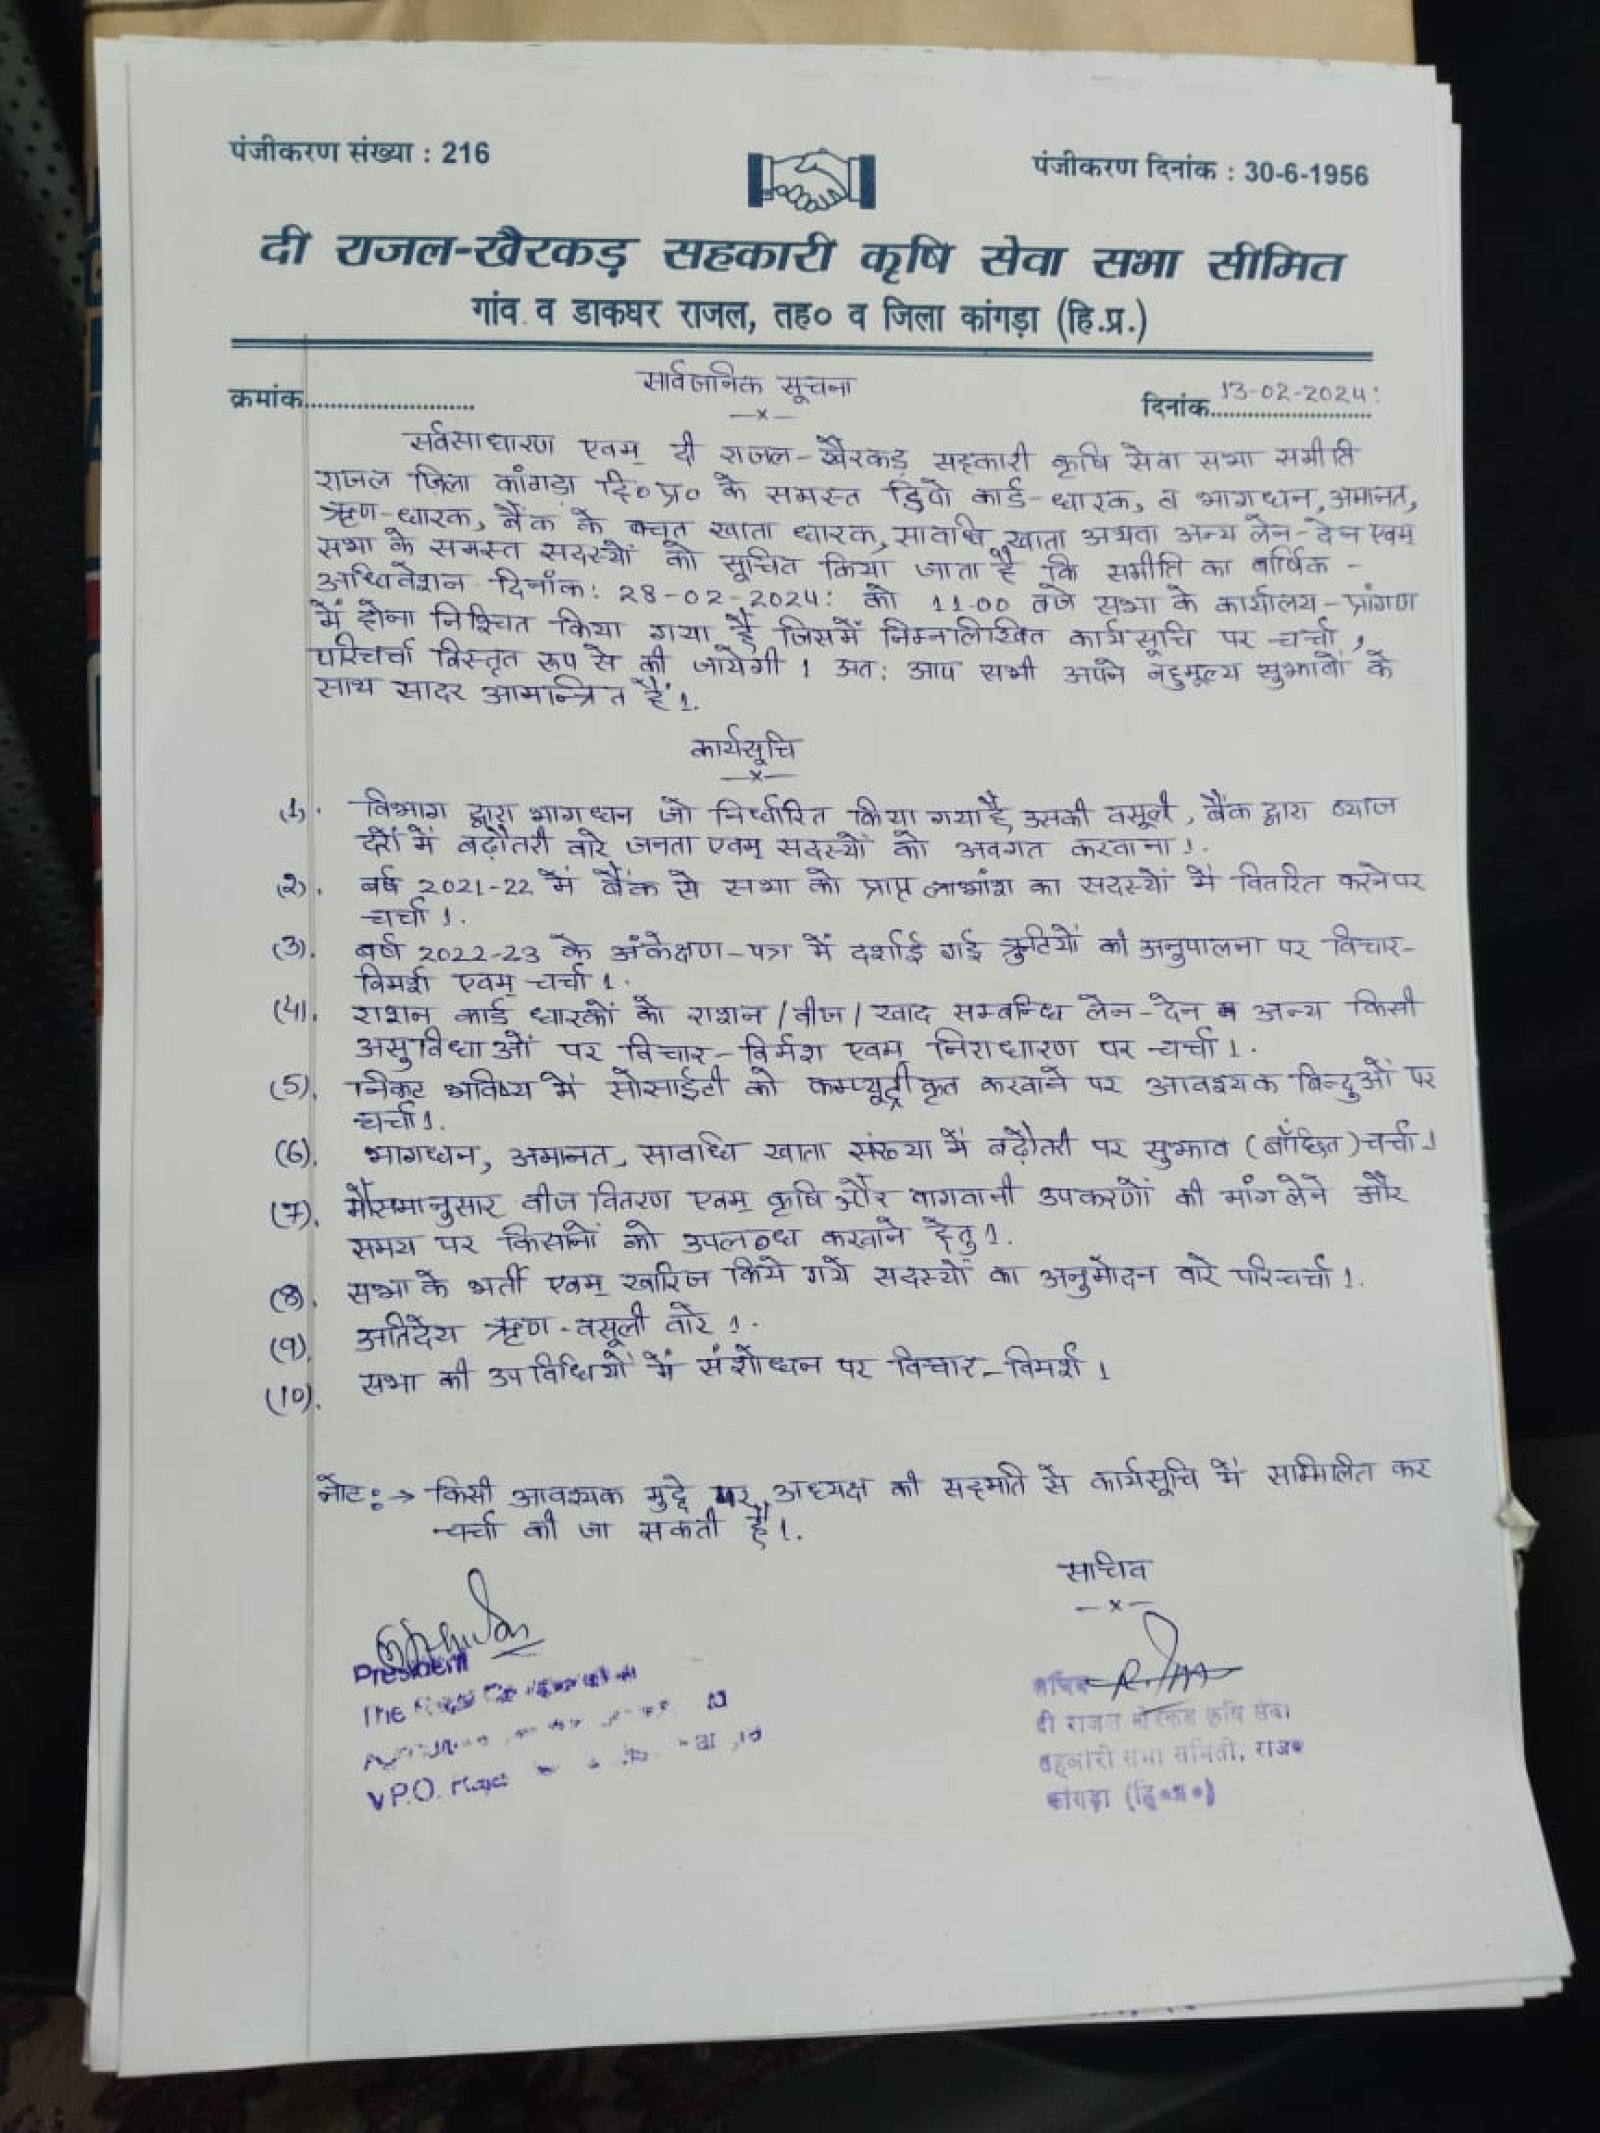 पंजीकरण संख्या : 216
पंजीकरण दिनांक : 30-6-1956
दी राजल-खैरकड़ सहकारी कृषि सेवा सभा सीमित
गांव व डाकघर राजल, तह० व जिला कांगड़ा (हि.प्र.)
सार्वजनिक सूचना
क्रमांक..........................
दिनांक 13-02-2024:
सर्वसाधारण एवम् दी राजल-खैरकड़ सहकारी कृषि सेवा सभा समीति
राजल जिला कांगड़ा हि०प्र० के समस्त डिपो कार्ड-धारक, व भागधन, अमानत,
ऋण-धारक, बैंक के बचत खाता धारक, सावधि खाता अथवा अन्य लेन-देन एवम्
सभा के समस्त सदस्यों को सूचित किया जाता है कि समीति का वार्षिक -
अधिवेशन दिनाँक: 28-02-2024: को 11-00 बजे सभा के कार्यालय-प्रांगण
में होना निश्चित किया गया है जिसमें निम्नलिखित कार्यसूचि पर चर्चा,
परिचर्चा विस्तृत रूप से की जायेगी। अत: आप सभी अपने बहुमूल्य सुझावों के
साथ सादर आमन्त्रित हैं।.
कार्यसूचि
(1). विभाग द्वारा भागधन जो निर्धारित किया गया है, उसकी वसूली, बैंक द्वारा ब्याज
दरों में बढ़ौतरी बारे जनता एवम् सदस्यों को अवगत करवाना।.
(2). वर्ष 2021-22 में बैंक से सभा को प्राप्त लाभांश का सदस्यों में वितरित करने पर
चर्चा।.
(3). वर्ष 2022-23 के अंकेक्षण-पत्र में दर्शाई गई त्रुटियों की अनुपालना पर विचार-
विमर्श एवम् चर्चा।.
(4). राशन कार्ड धारकों को राशन/बीज/खाद सम्बन्धि लेन-देन व अन्य किसी
असुविधाओं पर विचार-विर्मश एवम् निराधारण पर चर्चा।.
(5). निकट भविष्य में सोसाईटी को कम्प्यूट्रीकृत करवाने पर आवश्यक बिन्दुओं पर
चर्चा।.
(6). भागधन, अमानत, सावधि खाता संख्या में बढ़ौतरी पर सुझाव (बाँछित) चर्चा।
(7). मौसमानुसार बीज वितरण एवम् कृषि और बागवानी उपकरणों की मांग लेने और
समय पर किसानों को उपलब्ध करवाने हेतु।.
(8). सभा के भर्ती एवम् खारिज किये गये सदस्यों का अनुमोदन बारे परिचर्चा।.
(9). अतिदेय ऋण-वसूली बारे।.
(10). सभा की उपविधियों में संशोधन पर विचार-विमर्श।
नोट:→ किसी आवश्यक मुद्दे पर, अध्यक्ष की सहमति से कार्यसूचि में सम्मिलित कर
चर्चा की जा सकती है।.
सचिव
President
The
V.P.O.
सचिव
दी राजल खैरकड़ कृषि सेवा
सहकारी सभा समिती, राजल
कांगड़ा (हि०प्र०)